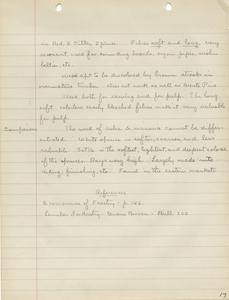 in Red & Sitka Spruce. Fibres soft and long, very
resonant, used for sounding boards, organ pipes, violin
bellies, etc.
Wood apt to be discolored by brown streaks in
immature timber. Does not work as well as White Pine
Used both for sawing and for pulp. The long
soft colorless easily bleached fibres make it very valuable
for pulp.
Comparison The wood of rubra & mariana cannot be differ-
entiated. White spruce is softer, coarser and less
valuable. Sitka is the softest, lightest, and deepest colored
of the spruces. Bears very high. Largely made into
siding, finishing, etc. Found in the eastern markets
References
Economics of Forestry - p. 166
Lumber Industry - Census Bureau - Bull 203
17